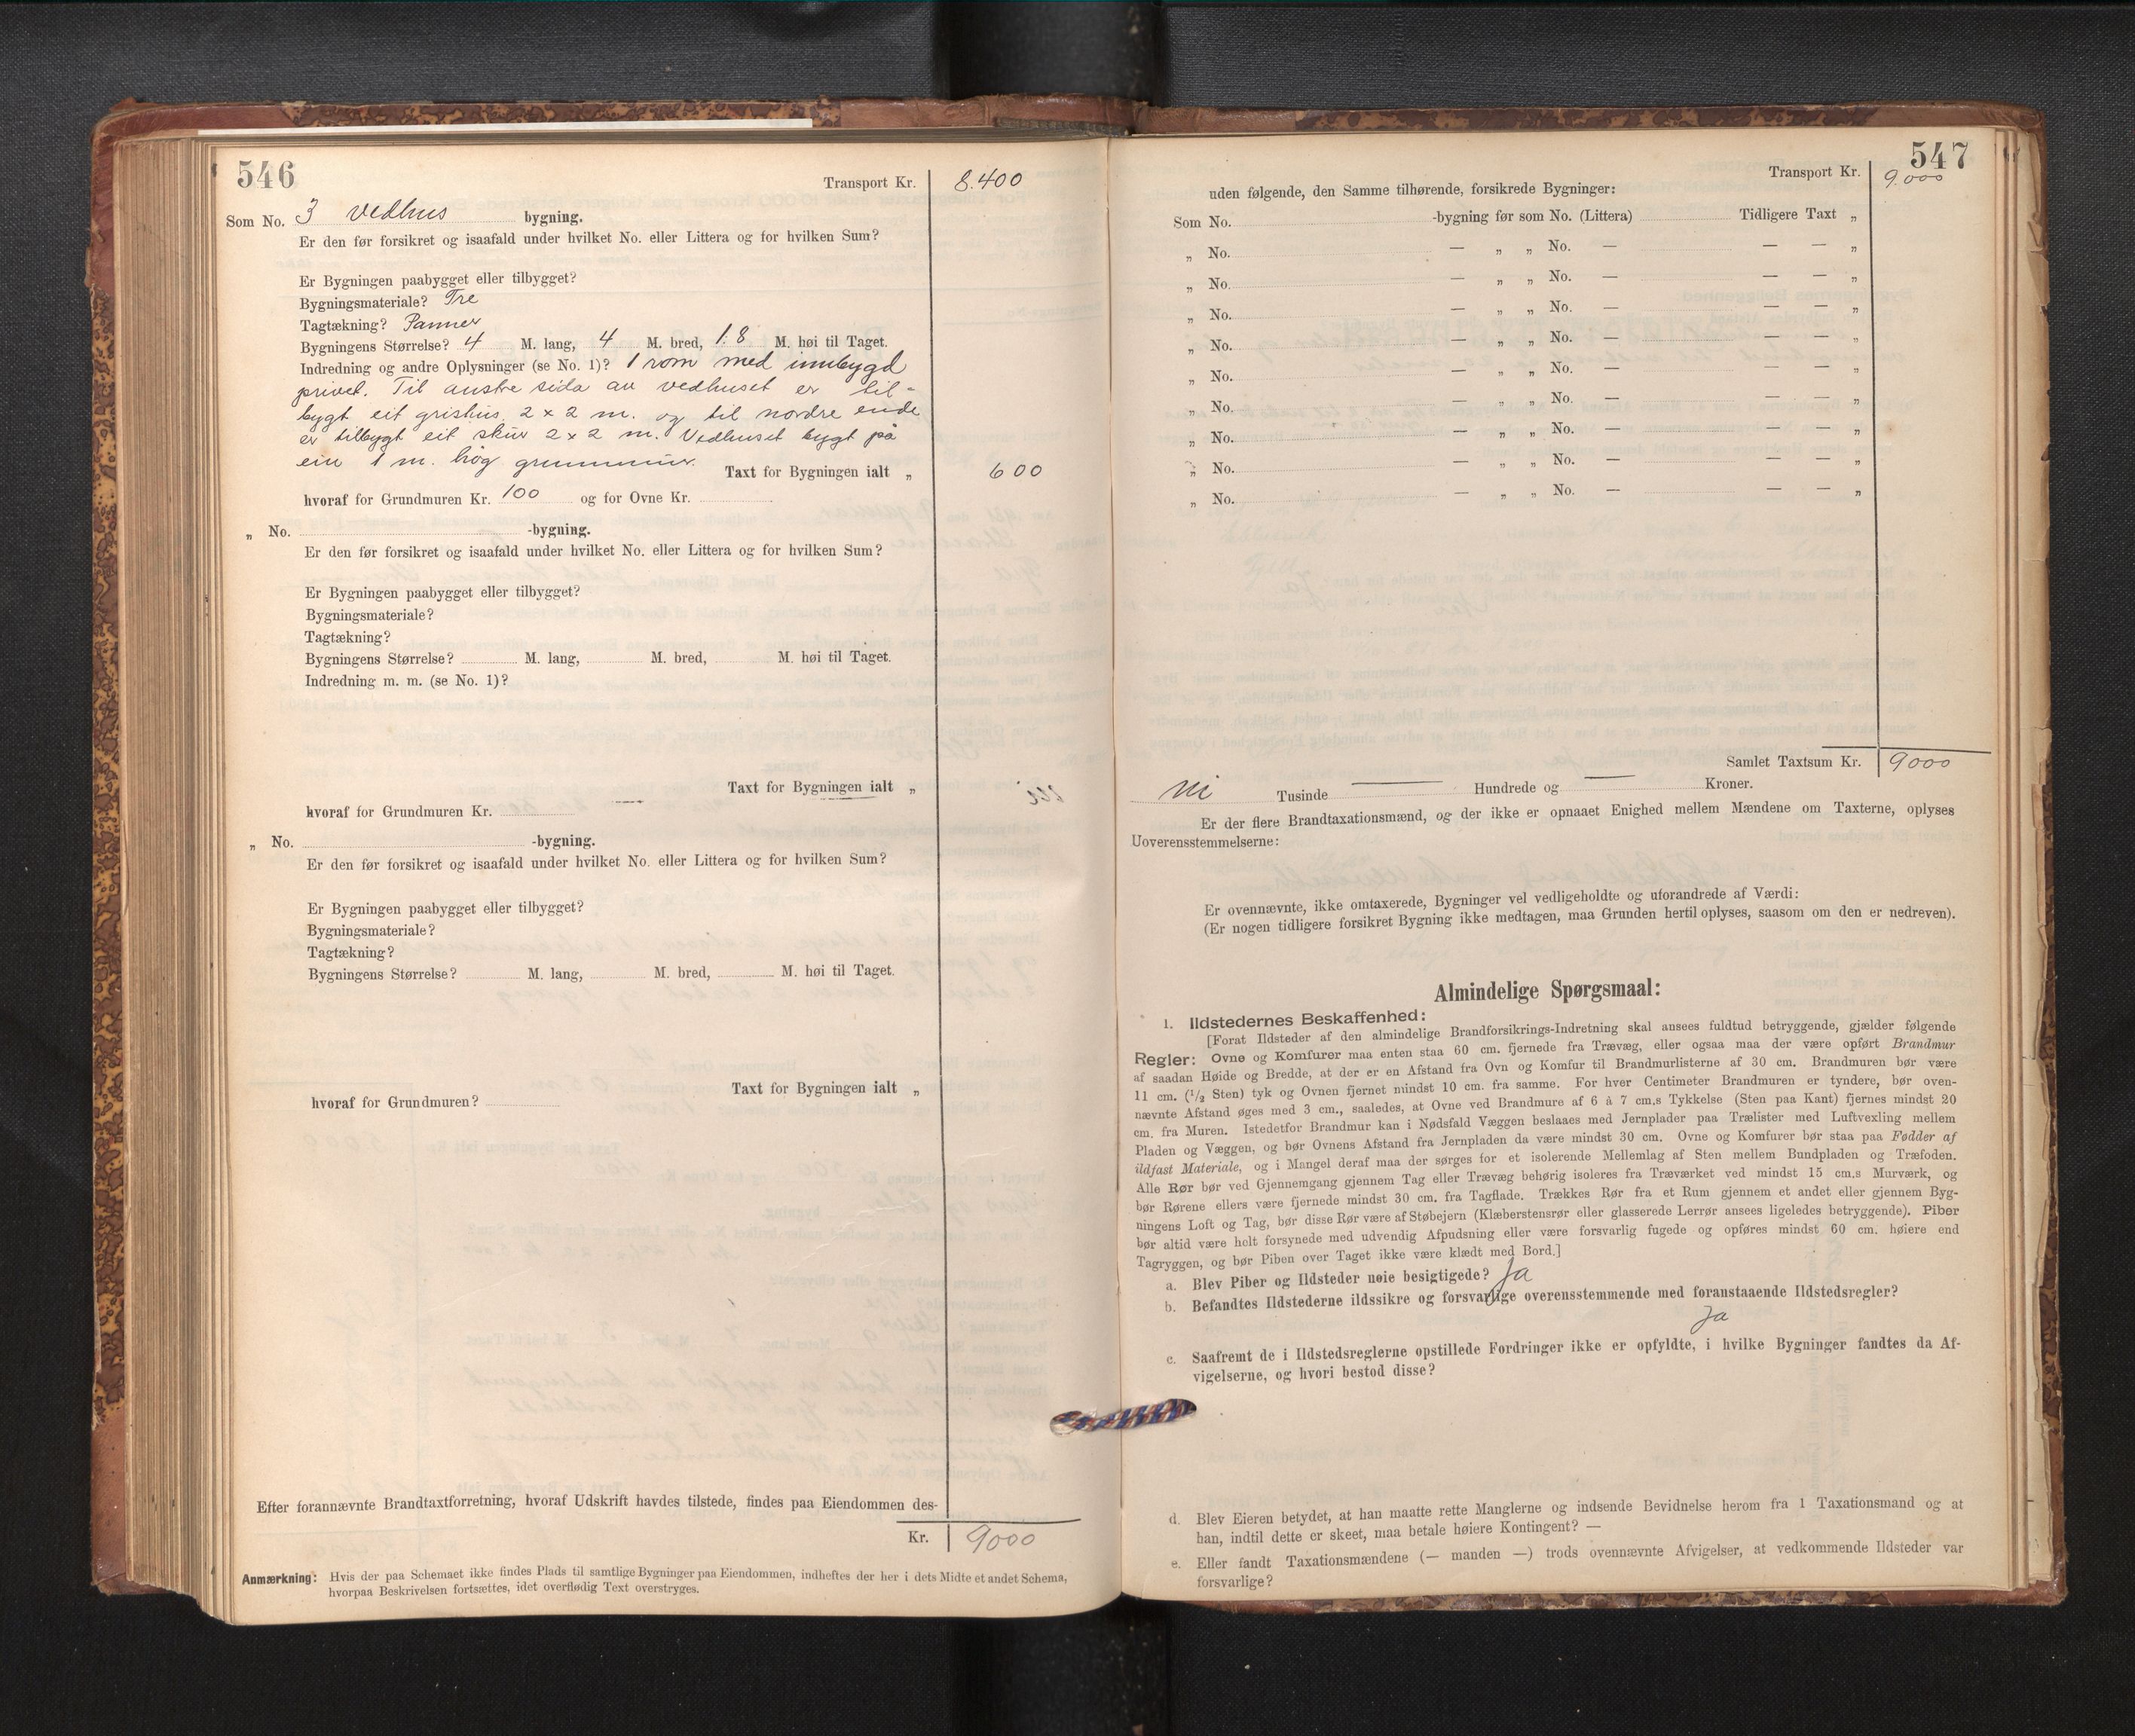 546
Transport Kr. 8.400
Som No. 3 vedhus bygning.
Er den før forsikret og isaafald under hvilket No. eller Littera og for hvilken Sum?
Er Bygningen paabygget eller tilbygget?
Bygningsmateriale? Tre
Tagtækning? Panner
Bygningens Størrelse? 4 M. lang, 4 M. bred, 1.8 M. høi til Taget.
Indredning og andre Oplysninger (se No. 1)? 1 rom med innbygd
privet. Til austre sida av vedhuset er til-
bygt eit grishus 2 x 2 m. og til nordre ende
er tilbygt eit skur 2 x 2 m. Vedhuset bygt på
ein 1 m. høg grunnmur.
Taxt for Bygningen ialt „ 600
hvoraf for Grundmuren Kr. 100 og for Ovne Kr.
„ No. -bygning.
Er den før forsikret og isaafald under hvilket No. eller Littera og for hvilken Sum?
Er Bygningen paabygget eller tilbygget?
Bygningsmateriale?
Tagtækning?
Bygningens Størrelse? M. lang, M. bred, M. høi til Taget.
Indredning m. m. (se No. 1)?
Taxt for Bygningen ialt „
hvoraf for Grundmuren Kr.
„ No. -bygning.
Er den før forsikret og isaafald under hvilket No. eller Littera og for hvilken Sum?
Er Bygningen paabygget eller tilbygget?
Bygningsmateriale?
Tagtækning?
Bygningens Størrelse? M. lang, M. bred, M. høi til Taget.
Taxt for Bygningen ialt „
hvoraf for Grundmuren?
Efter forannævnte Brandtaxtforretning, hvoraf Udskrift havdes tilstede, findes paa Eiendommen des-
Kr. 9000
Anmærkning: Hvis der paa Schemaet ikke findes Plads til samtlige Bygninger paa Eiendommen, indheftes der her i dets Midte et andet Schema,
hvorpaa Beskrivelsen fortsættes, idet overflødig Text overstryges.
547
Transport Kr. 9.000
uden følgende, den Samme tilhørende, forsikrede Bygninger:
Som No. -bygning før som No. (Littera) Tidligere Taxt „
„ No. — „ „ No. — — — „
„ No. — „ „ No. — — — „
„ No. — „ „ No. — — — „
„ No. — „ „ No. — — — „
„ No. — „ „ No. — — — „
„ No. — „ „ No. — — — „
„ No. — „ „ No. — — — „
„ No. — „ „ No. — — — „
„ No. — „ „ No. — — — „
Samlet Taxtsum Kr. 9000
Ni Tusinde — Hundrede og — Kroner.
Er der flere Brandtaxationsmænd, og der ikke er opnaaet Enighed mellem Mændene om Taxterne, oplyses
Uoverensstemmelserne:
Er ovennævnte, ikke omtaxerede, Bygninger vel vedligeholdte og uforandrede af Værdi:
(Er nogen tidligere forsikret Bygning ikke medtagen, maa Grunden hertil oplyses, saasom om den er nedreven).
Almindelige Spørgsmaal:
1. Ildstedernes Beskaffenhed:
[Forat Ildsteder af den almindelige Brandforsikrings-Indretning skal ansees fuldtud betryggende, gjælder følgende
Regler: Ovne og Komfurer maa enten staa 60 cm. fjernede fra Trævæg, eller ogsaa maa der være opført Brandmur
af saadan Høide og Bredde, at der er en Afstand fra Ovn og Komfur til Brandmurlisterne af 30 cm. Brandmuren bør være
11 cm. (1/2 Sten) tyk og Ovnen fjernet mindst 10 cm. fra samme. For hver Centimeter Brandmuren er tyndere, bør oven-
nævnte Afstand øges med 3 cm., saaledes, at Ovne ved Brandmure af 6 à 7 cm.s Tykkelse (Sten paa Kant) fjernes mindst 20
cm. fra Muren. Istedetfor Brandmur kan i Nødsfald Væggen beslaaes med Jernplader paa Trælister med Luftvexling mellem
Pladen og Væggen, og bør Ovnens Afstand fra Jernpladen da være mindst 30 cm. Ovne og Komfurer bør staa paa Fødder af
ildfast Materiale, og i Mangel deraf maa der sørges for et isolerende Mellemlag af Sten mellem Bundpladen og Træfoden.
Alle Rør bør ved Gjennemgang gjennem Tag eller Trævæg behørig isoleres fra Træværket ved mindst 15 cm.s Murværk, og
bør Rørene ellers være fjernede mindst 30 cm. fra Tagflade. Trækkes Rør fra et Rum gjennem et andet eller gjennem Byg-
ningens Loft og Tag, bør disse Rør være af Støbejern (Klæberstensrør eller glasserede Lerrør ansees ligeledes betryggende). Piber
bør altid være helt forsynede med udvendig Afpudsning eller være forsvarlig fugede og opføres mindst 60 cm. høiere end
Tagryggen, og bør Piben over Taget ikke være klædt med Bord.]
a. Blev Piber og Ildsteder nøie besigtigede? Ja
b. Befandtes Ildstederne ildssikre og forsvarlige overensstemmende med foranstaaende Ildstedsregler?
Ja
c. Saafremt de i Ildstedsreglerne opstillede Fordringer ikke er opfyldte, i hvilke Bygninger fandtes da Af-
vigelserne, og hvori bestod disse?
d. Blev Eieren betydet, at han maatte rette Manglerne og indsende Bevidnelse herom fra 1 Taxationsmand og at
han, indtil dette er skeet, maa betale høiere Kontingent? —
e. Eller fandt Taxationsmændene (— manden —) trods ovennævnte Afvigelser, at vedkommende Ildsteder var
forsvarlige?